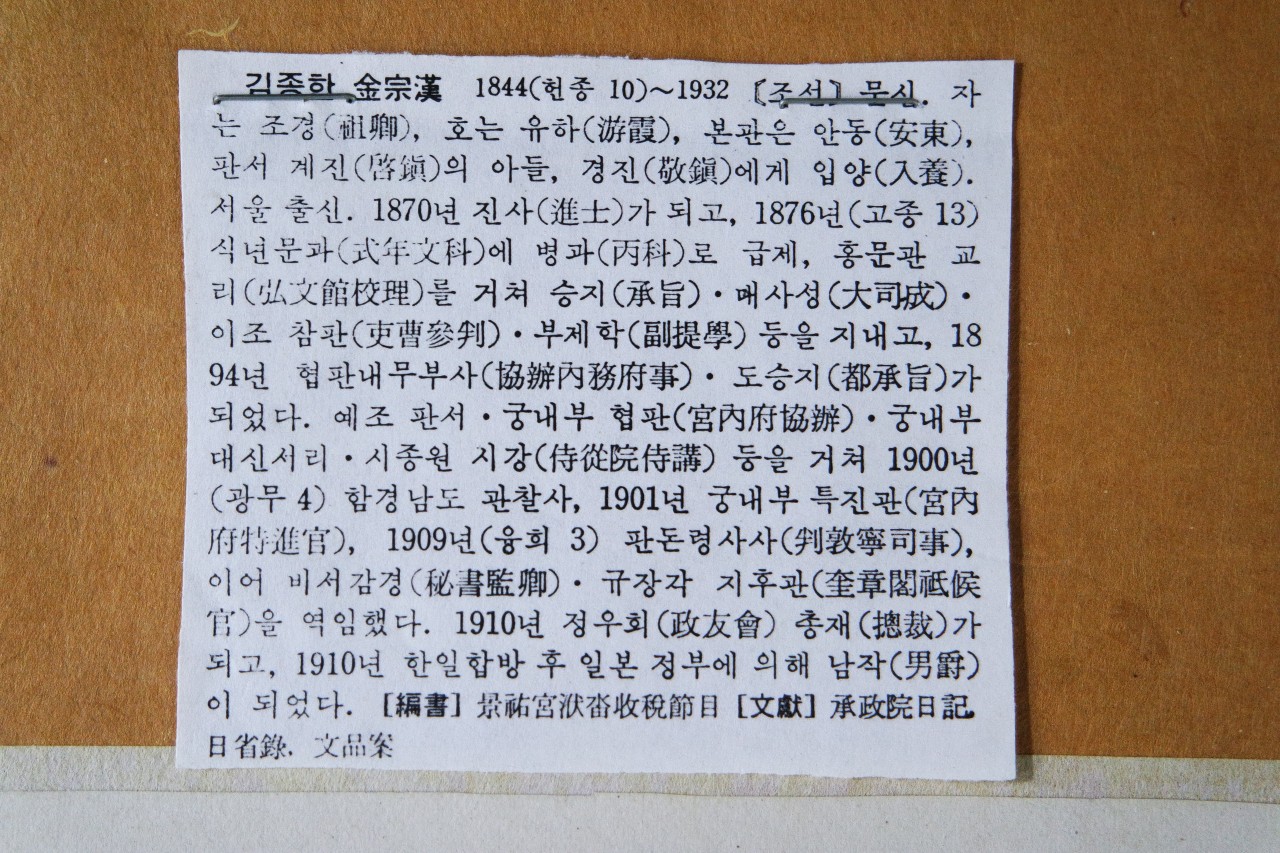 김종한 金宗漢 1844(헌종 10)～1932 〔조선〕 문신. 자
는 조경(祖卿), 호는 유하(游霞), 본관은 안동(安東),
판서 계진(啓鎭)의 아들, 경진(敬鎭)에게 입양(入養).
서울 출신. 1870년 진사(進士)가 되고, 1876년(고종 13)
식년문과(式年文科)에 병과(丙科)로 급제, 홍문관 교
리(弘文館校理)를 거쳐 승지(承旨)·대사성(大司成)·
이조 참판(吏曹參判)·부제학(副提學) 등을 지내고, 18
94년 협판내무부사(協辦內務府事)· 도승지(都承旨)가
되었다. 예조 판서·궁내부 협판(宮內府協辦)·궁내부
대신서리·시종원 시강(侍從院侍講) 등을 거쳐 1900년
(광무 4) 함경남도 관찰사, 1901년 궁내부 특진관(宮內
府特進官), 1909년(융희 3) 판돈령사사(判敦寧司事),
이어 비서감경(秘書監卿)· 규장각 지후관(奎章閣祗候
官)을 역임했다. 1910년 정우회(政友會) 총재(總裁)가
되고, 1910년 한일합방 후 일본 정부에 의해 남작(男爵)
이 되었다. [編書] 景祐宮洑畓收稅節目 [文獻] 承政院日記.
日省錄. 文品案